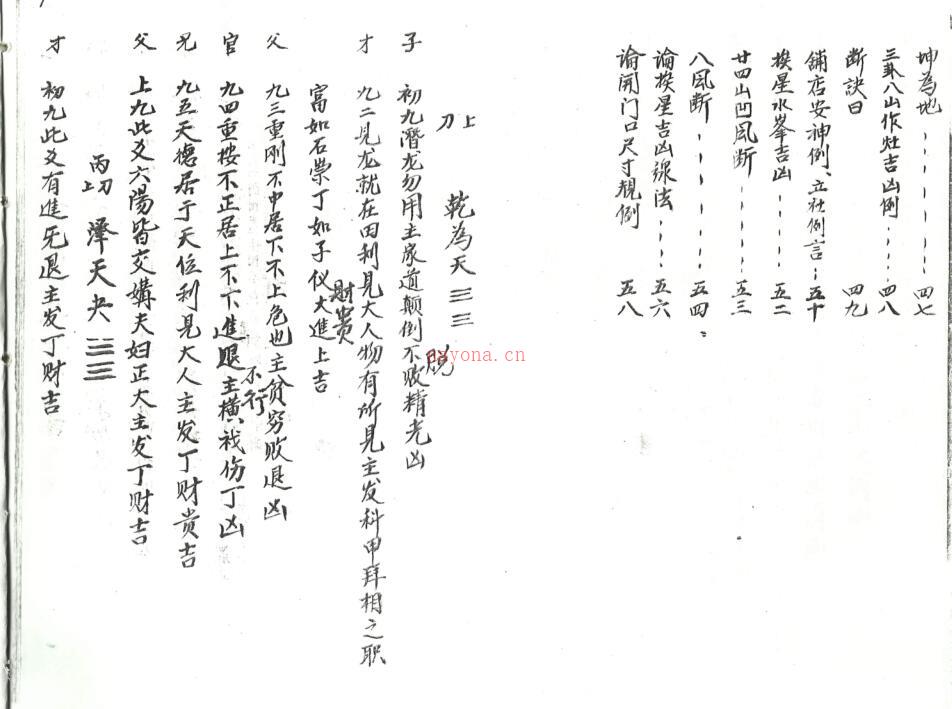 坤為地 四七
三卦八山作灶吉凶例 四八
断訣曰 四九
舖店安神例、立社例言 五十
挨星水峯吉凶 五二
廿四山凹風断 五三
八風断 五四
論挨星吉凶線法 五六
論開门口尺寸規例 五八
上
乾為天 ☰☰
子 初九潛龙勿用主家道颠倒不败精光凶
才 九二見龙就在田利見大人物有所見主发科甲拜相之职
富如石崇丁如子仪大進上吉
財貴
父 九三重刚不中居下不上危也主贫穷败退凶
不行
官 九四重按不正居上不下進退主横祸伤丁凶
兄 九五天德居于天位利見大人主发丁财贵吉
父 上九此爻六陽皆交媾夫妇正大主发丁财吉
丙上 澤天夬 ☱☰
才 初九此爻有進无退主发丁财吉
nayona.cn